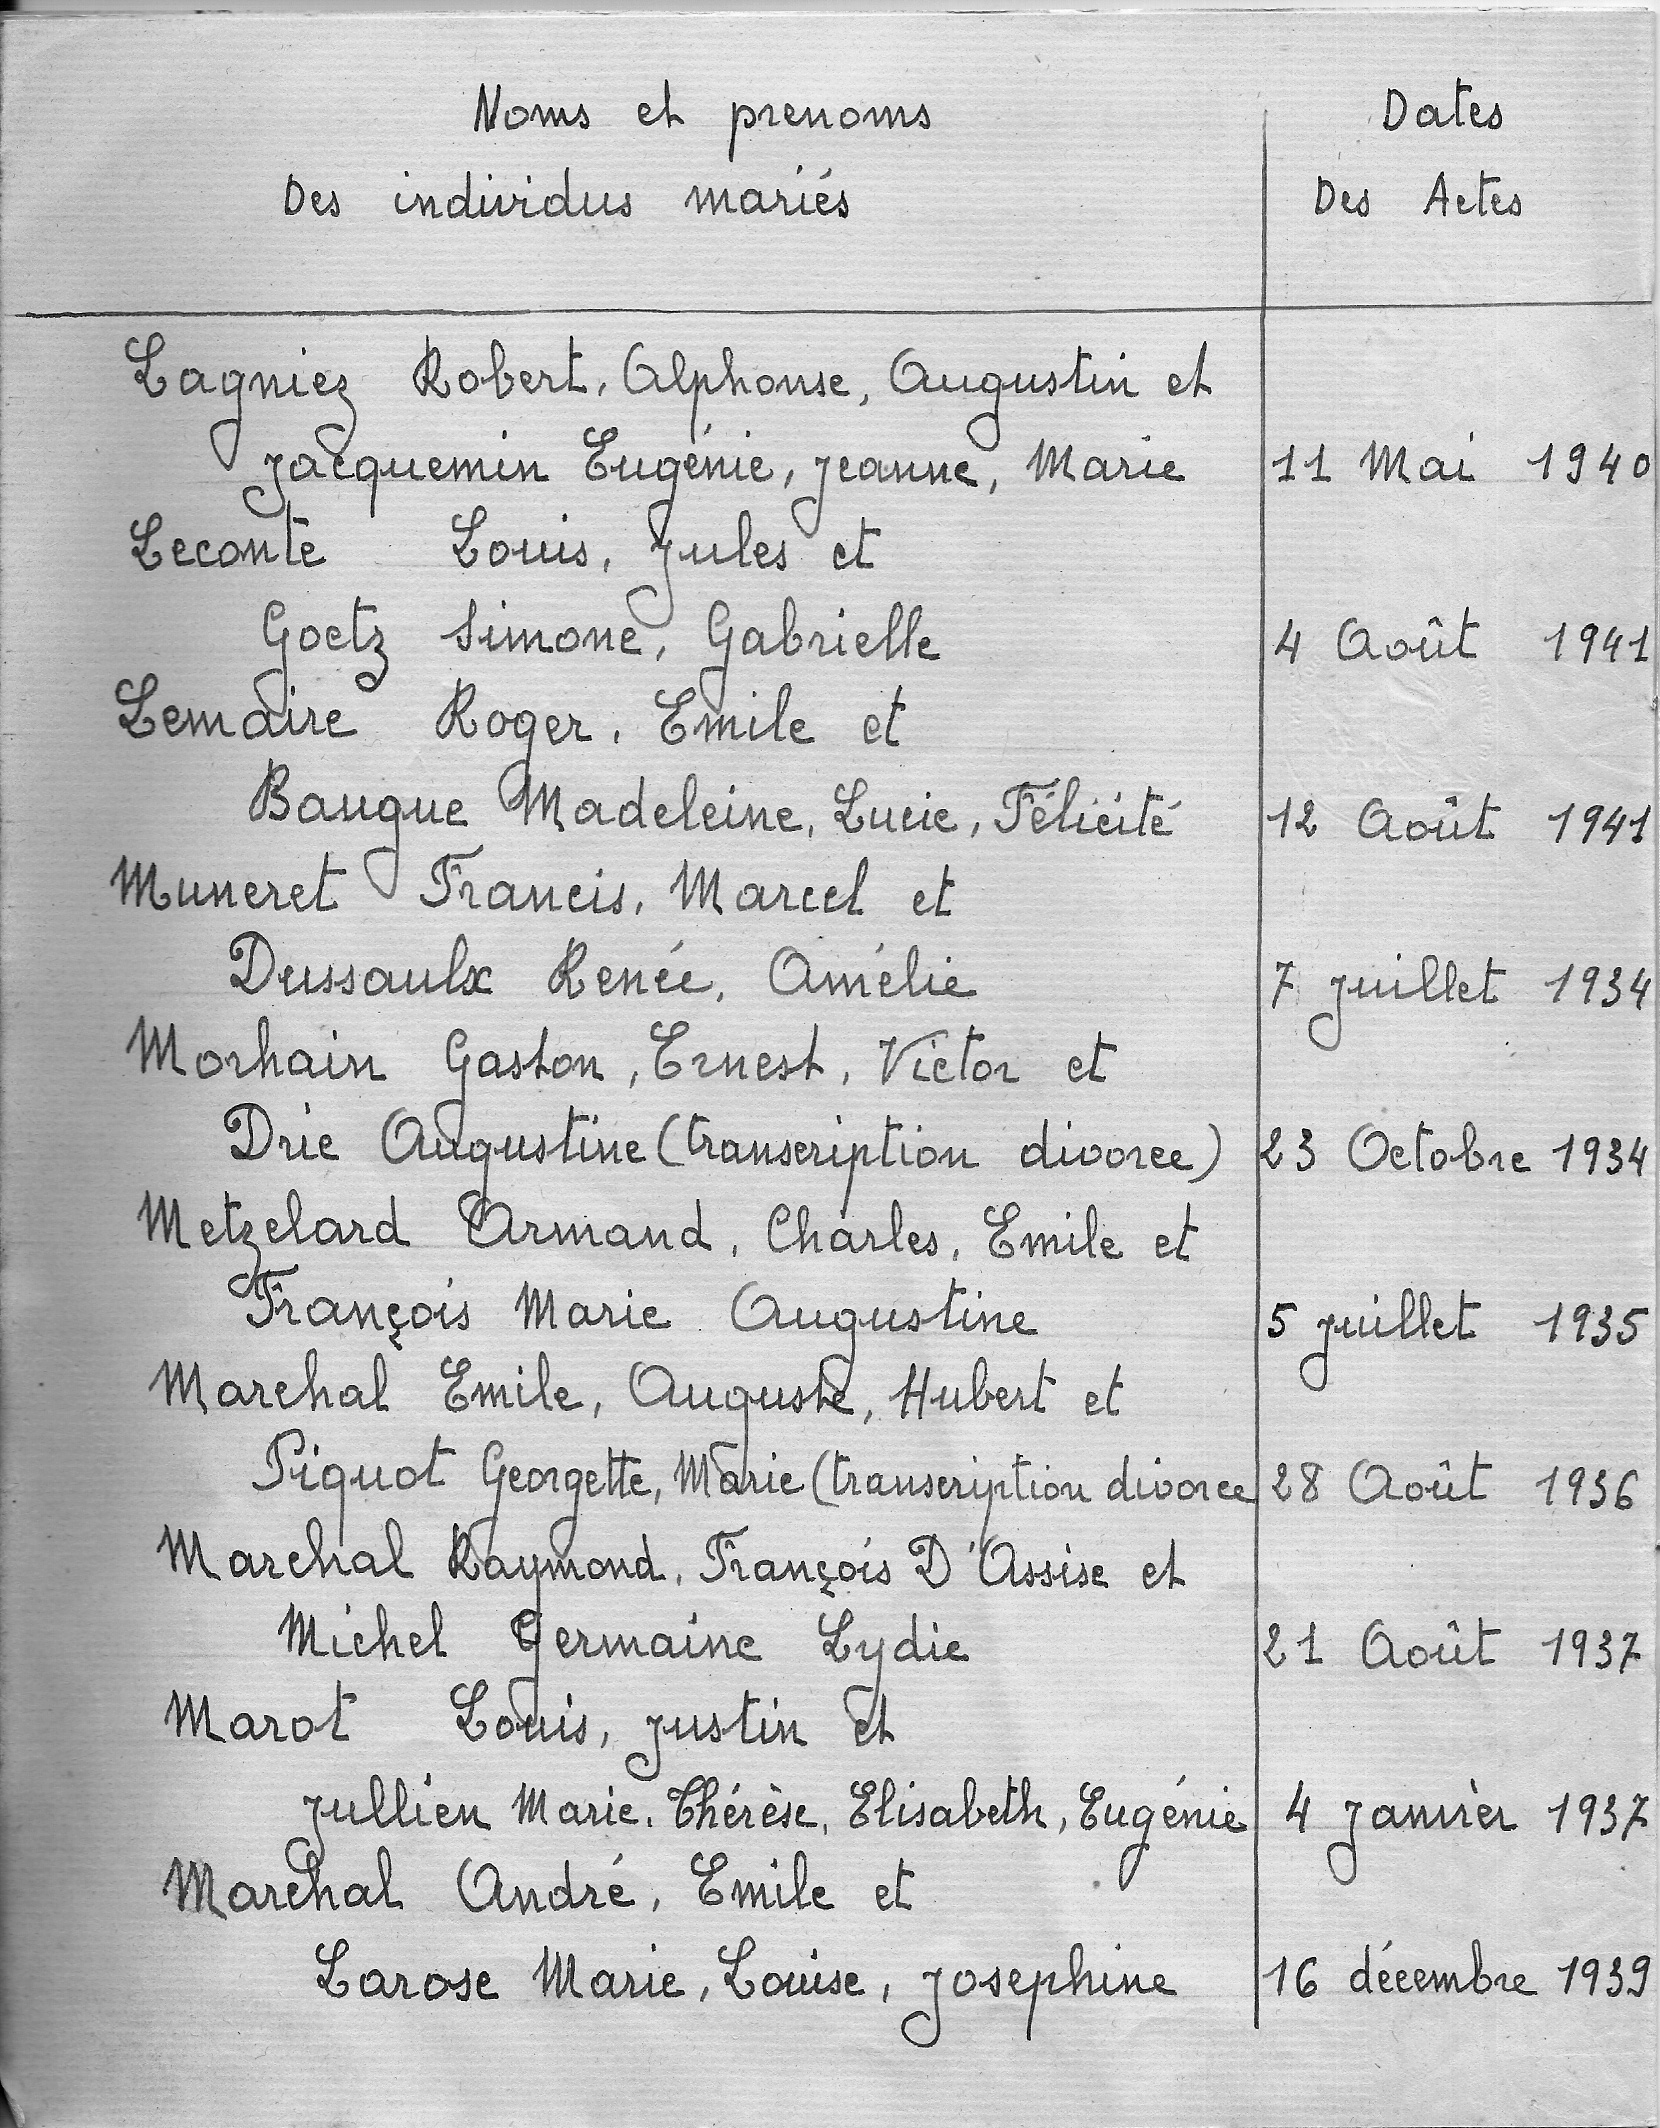 Noms et prenoms
Dates
Des individus mariés
Des Actes
Lagniez Robert, Alphonse, Augustin et
Jacquemin Eugénie, Jeanne, Marie 11 Mai 1940
Leconte Louis, Jules et
Goetz Simone, Gabrielle 4 Août 1941
Lemaire Roger, Emile et
Bauque Madeleine, Lucie, Félicité 12 Août 1941
Muneret Francis, Marcel et
Dussaulx Renée, Amélie 7 juillet 1934
Morhain Gaston, Ernest, Victor et
Drie Augustine (transcription divorce) 23 Octobre 1934
Metzelard Armand, Charles, Emile et
François Marie Augustine 5 juillet 1935
Marchal Emile, Auguste, Hubert et
Piquot Georgette, Marie (transcription divorce 28 Août 1936
Marchal Raymond, François D'Assise et
Michel Germaine Lydie 21 Août 1937
Marot Louis, Justin et
Jullien Marie. Thérèse, Elisabeth, Eugénie 4 Janvier 1937
Marchal André, Emile et
Larose Marie, Louise, Josephine 16 décembre 1939